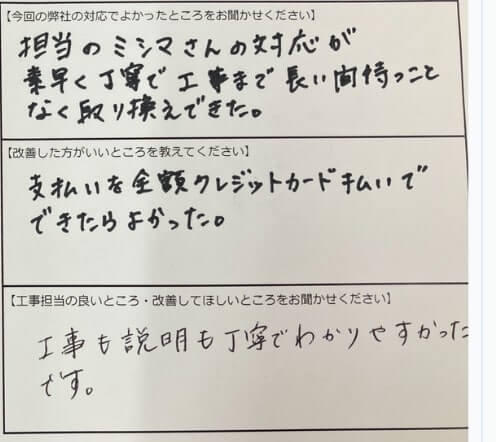 【今回の弊社の対応でよかったところをお聞かせください】
担当のミシマさんの対応が
素早く丁寧で工事まで長い間待つこと
なく取り換えできた。
【改善した方がいいところを教えてください】
支払いを全額クレジットカード払いで
できたらよかった。
【工事担当の良いところ・改善してほしいところをお聞かせください】
工事も説明も丁寧でわかりやすかった
です。